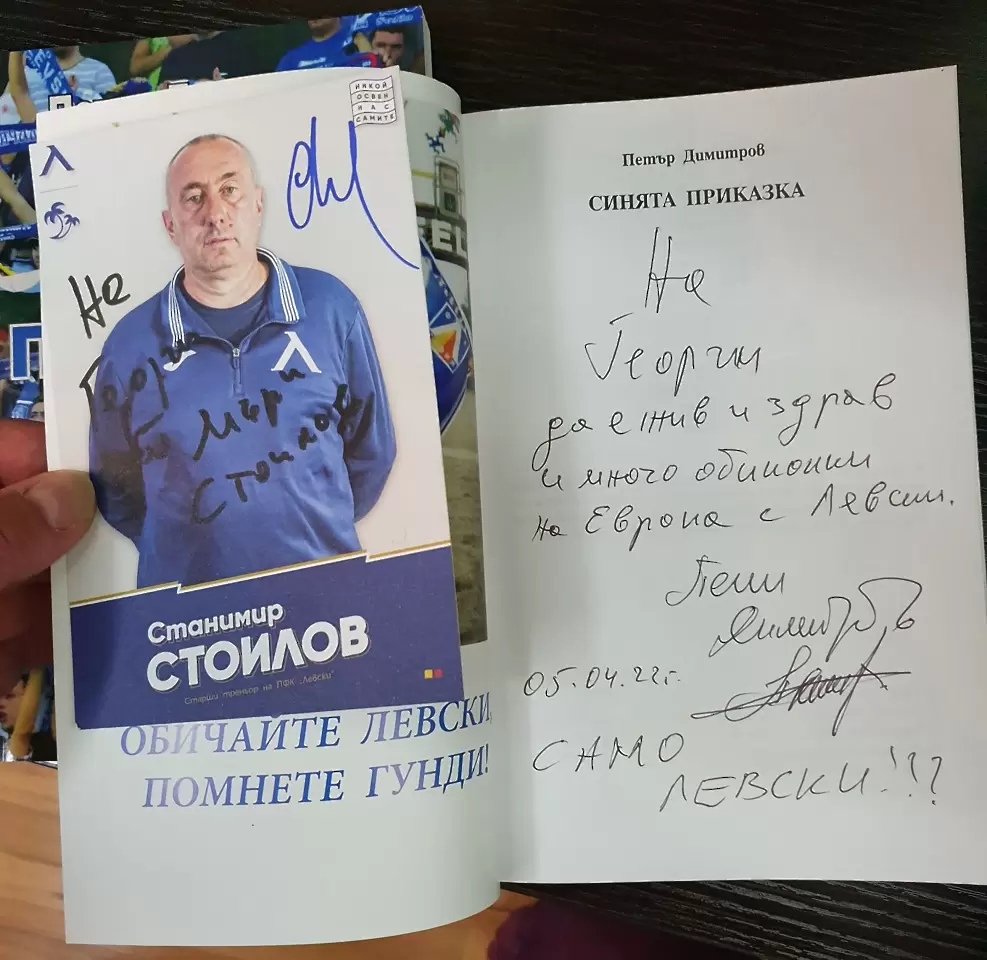 НИКОЙ
ОСВЕН
НАС
САМИТЕ
На
Георги
от Мъри
Стоилов
Станимир
СТОИЛОВ
Старши треньор на ПФК „Левски“
ОБИЧАЙТЕ ЛЕВСКИ,
ПОМНЕТЕ ГУНДИ!
Петър Димитров
СИНЯТА ПРИКАЗКА
На
Георги
да е жив и здрав
и много обиколки
на Европа с Левски.
Пепи
Димитров
05.04.22г.
САМО
ЛЕВСКИ!!!